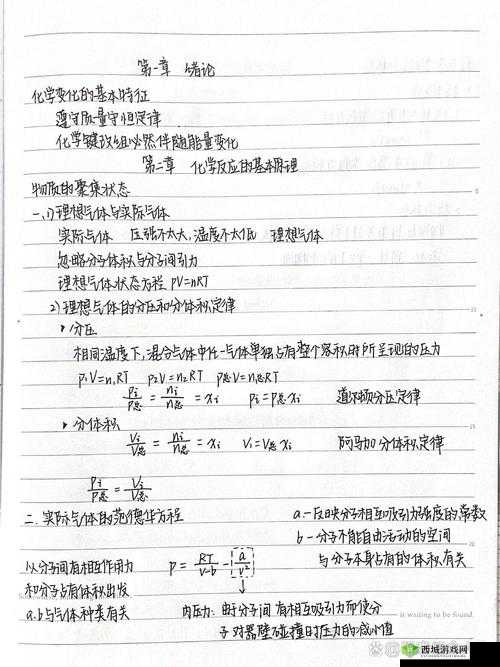 第一章 绪论
化学变化的基本特征
遵守质量守恒定律
化学键改组必然伴随能量变化
第二章 化学反应的基本原理
物质的聚集状态
一、1)理想气体与实际气体
实际气体 压强不太大,温度不太低 理想气体
忽略分子体积与分子间引力
理想气体状态方程 PV=nRT
2)理想气体的分压和分体积定律
分压
相同温度下,混合气体中任一气体单独占有整个容积时所呈现的压力
p₁V=n₁RT p₂V=n₂RT p总V=n总RT
pᵢ/p总 = nᵢ/n总 = xᵢ pᵢ=p总xᵢ 道尔顿分压定律
分体积
Vᵢ/V总 = nᵢ/n总 = xᵢ Vᵢ=V总xᵢ 阿马加分体积定律
pᵢ/p总 = Vᵢ/V总
二、实际气体的范德华方程
a-反映分子相互吸引力强度的常数
b-分子不能自由活动的空间
与分子本身占有的体积有关
以分子间有相互作用力
和分子占有体积出发
a.b与气体种类有关
p = RT/(V-b) - a/V²
↓
内压力:由于分子间有相互吸引力而使分
子对器壁碰撞时压力的减小值
it waiting to be found.
西城游戏网